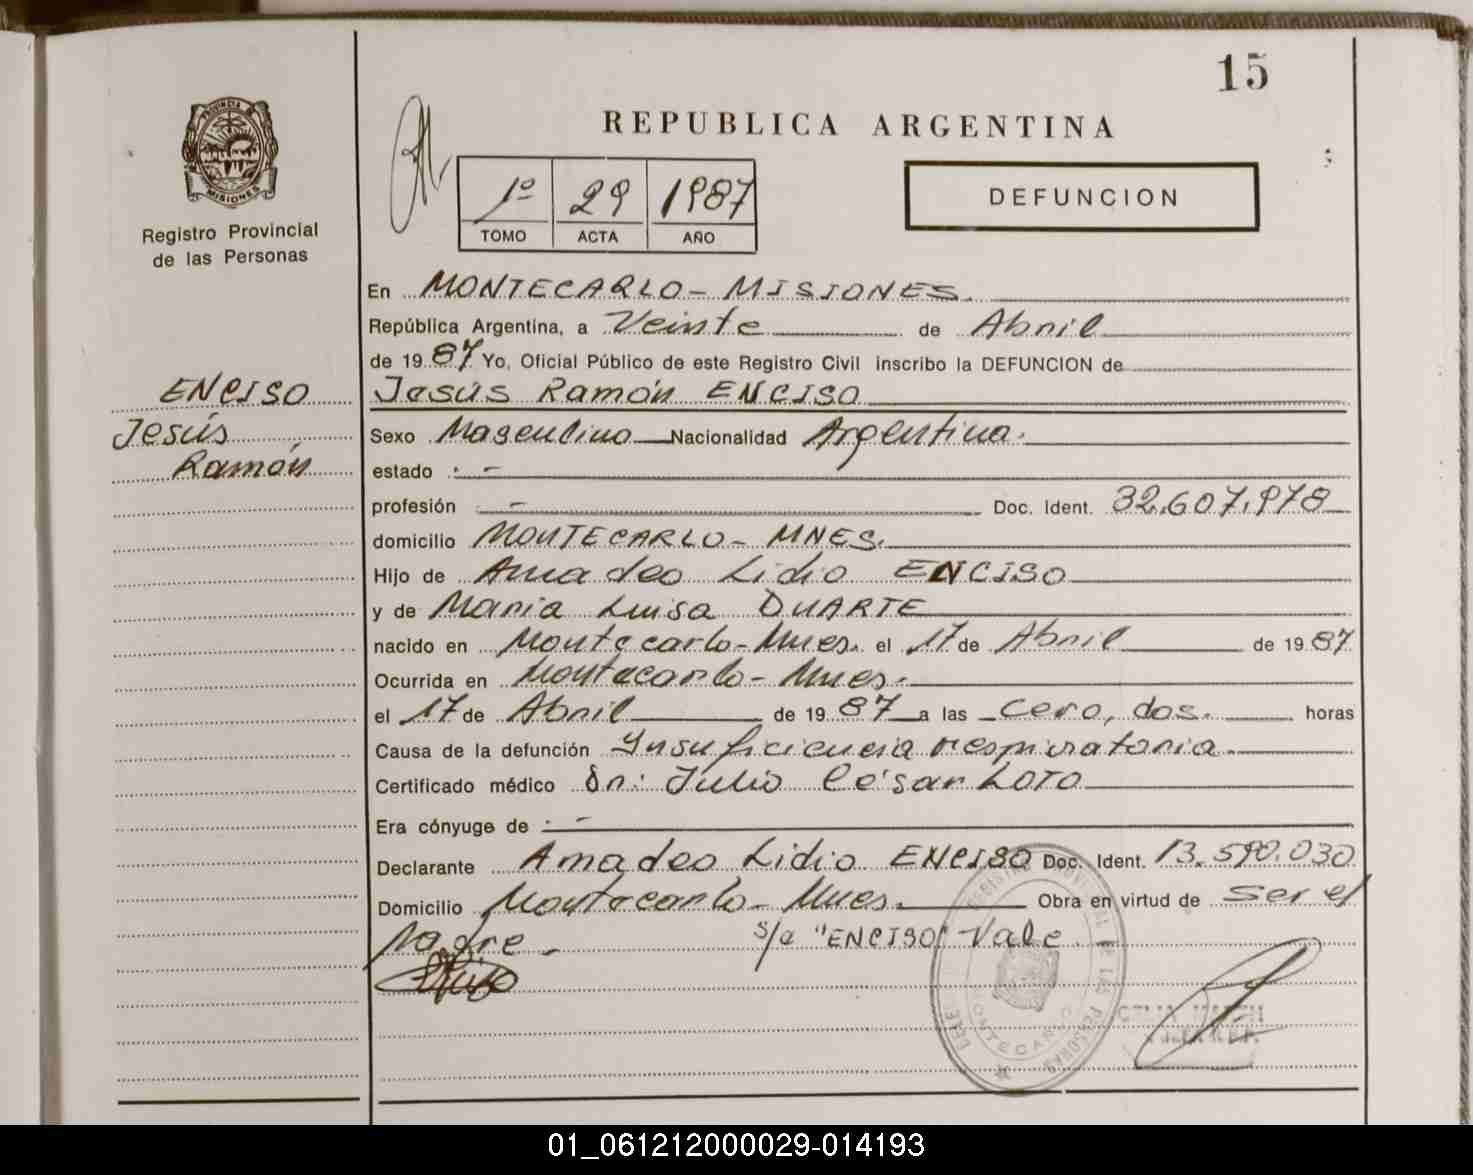 15
REPUBLICA ARGENTINA
PROVINCIA DE
MISIONES
Registro Provincial
de las Personas
1º 29 1987
TOMO ACTA AÑO
DEFUNCION
En MONTECARLO - MISIONES.
República Argentina, a Veinte de Abril
de 1987 Yo, Oficial Público de este Registro Civil inscribo la DEFUNCION de
ENCISO
Jesús
Ramón
Jesús Ramón ENCISO
Sexo Masculino Nacionalidad Argentina.
estado . -
profesión . - Doc. Ident. 32.607.978
domicilio MONTECARLO - MNES.
Hijo de Amadeo Lidio ENCISO
y de María Luisa DUARTE
nacido en Montecarlo - Mnes. el 17 de Abril de 1987
Ocurrida en Montecarlo - Mnes.
el 17 de Abril de 1987 a las cero, dos. horas
Causa de la defunción Insuficiencia respiratoria.
Certificado médico Dr: Julio César LOTO
Era cónyuge de . -
Declarante Amadeo Lidio ENCISO Doc. Ident. 13.590.030
Domicilio Montecarlo - Mnes. Obra en virtud de Ser el
Padre - s/a "ENCISO" Vale.
MONTECARLO
01_061212000029-014193